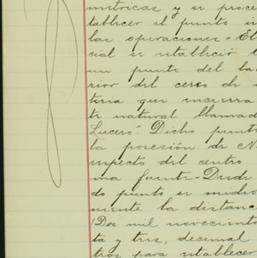 metricas y se proce
tablecer el punto in
las operaciones - El
cial se restableció t
un punto del la
rior del cerco de
tería que encierra
te natural llamad
Lucero" Dicho punt
la posesión de N
respecto del centro
ma fuente - Desde
do punto se midió
mente la distanc
(Dos mil novecient
ta y tres, decimal
tros para restablecer